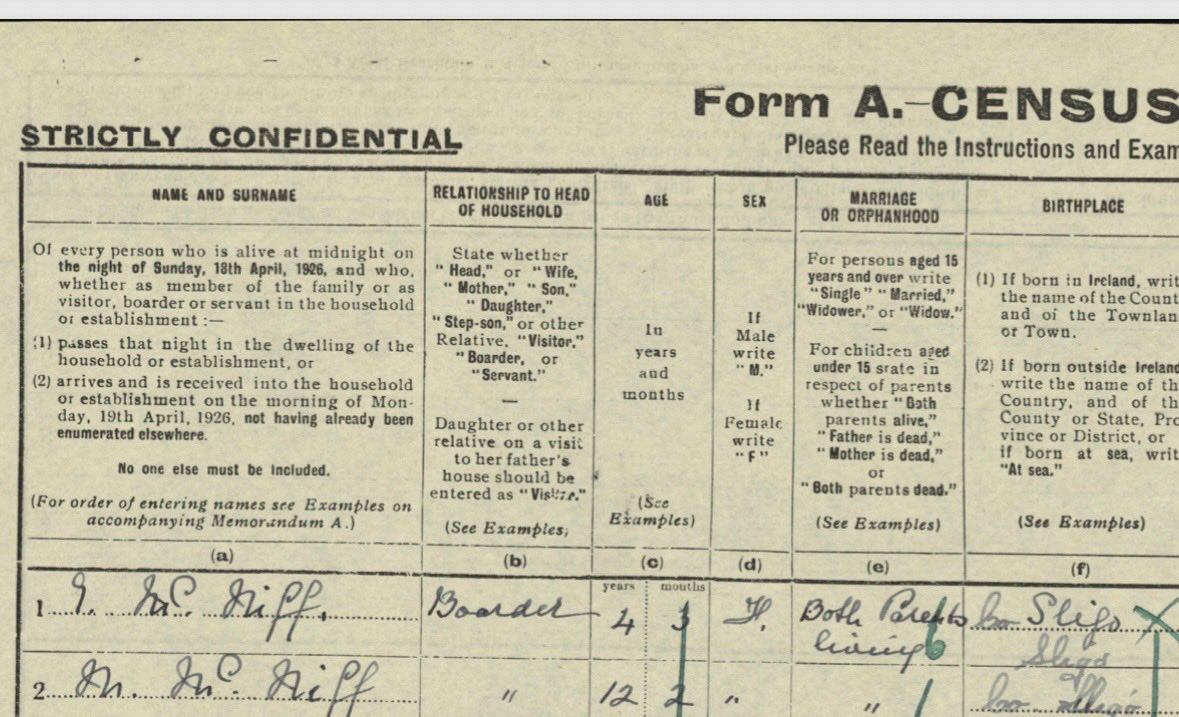 Form A.-CENSUS
STRICTLY CONFIDENTIAL
Please Read the Instructions and Exam
NAME AND SURNAME
Of every person who is alive at midnight on
the night of Sunday, 18th April, 1926, and who,
whether as member of the family or as
visitor, boarder or servant in the household
or establishment :—
(1) passes that night in the dwelling of the
household or establishment, or
(2) arrives and is received into the household
or establishment on the morning of Mon-
day, 19th April, 1926, not having already been
enumerated elsewhere.
No one else must be included.
(For order of entering names see Examples on
accompanying Memorandum A.)
(a)
RELATIONSHIP TO HEAD
OF HOUSEHOLD
State whether
"Head," or "Wife,
"Mother," "Son,"
"Daughter,"
"Step-son," or other
Relative, "Visitor."
"Boarder, or
"Servant."
—
Daughter or other
relative on a visit
to her father's
house should be
entered as "Visitor."
(See Examples,
(b)
AGE
In
years
and
months
(See
Examples)
(c)
SEX
If
Male
write
"M."
If
Female
write
"F"
(d)
MARRIAGE
OR ORPHANHOOD
For persons aged 15
years and over write
"Single" "Married,"
"Widower," or "Widow."
—
For children aged
under 15 state in
respect of parents
whether "Both
parents alive,"
"Father is dead,"
"Mother is dead,"
or
"Both parents dead."
(See Examples)
(e)
BIRTHPLACE
(1) If born in Ireland, writ
the name of the Count
and of the Townlan
or Town.
(2) If born outside Ireland
write the name of th
Country, and of th
County or State, Pro
vince or District, or
if born at sea, writ
"At sea."
(See Examples)
(f)
years months
1 Mc Niff. Boarder 4 3 F. Both Parents Co Sligo
living Sligo
2 M. Mc Niff " 12 2 " " Co. Sligo